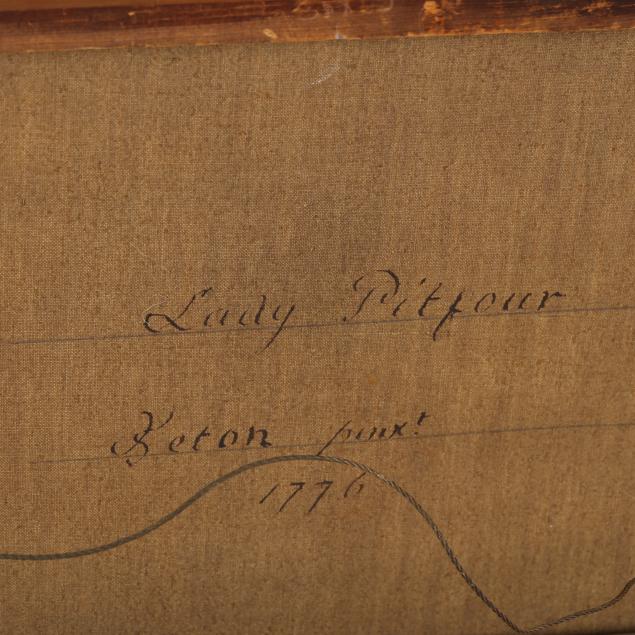 Lady Pitfour
Keton pinxt
1776